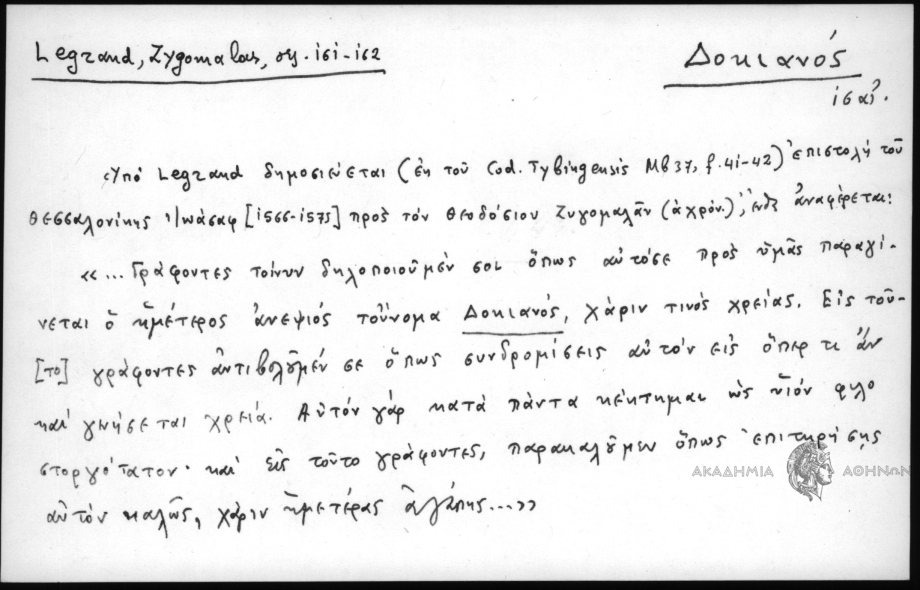 Legrand, Zygomalas, σς. 161-162
Δοκιανός
ις αἰ.
Ὑπό Legrand δημοσιεύεται (ἐκ τοῦ Cod. Tybingensis Mb37, f.41-42) ἐπιστολή τοῦ
Θεσσαλονίκης Ἰωάσαφ [1566-1575] πρὸς τόν Θεοδόσιον Ζυγομαλᾶν (ἀχρόν.), ἔνθα ἀναφέρεται:
«... Γράφοντες τοίνυν δηλοποιοῦμέν σοι ὅπως αὐτόσε πρὸς ὑμᾶς παραγί-
νεται ὁ ἡμέτερος ἀνεψιός τοὔνομα Δοκιανός, χάριν τινός χρείας. Εἰς τοῦ-
[το] γράφοντες ἀντιβολοῦμέν σε ὅπως συνδρομίσεις αὐτόν εἰς ὅπερ τι ἄν
καί γνήσεται χρεία. Αὐτόν γάρ κατά πάντα κέκτημαι ὡς υἱόν φιλο
στοργότατον· καί εἰς τοῦτο γράφοντες, παρακαλοῦμεν ὅπως ἐπιτηρήσῃς
αὐτόν καλῶς, χάριν ἡμετέρας ἀγάπης...»
ΑΚΑΔΗΜΙΑ ΑΘΗΝΩΝ